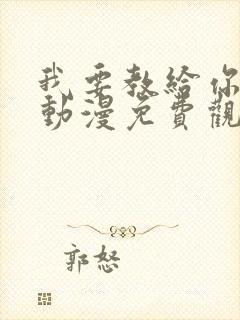 我要教給你
動漫免費觀
郭怒